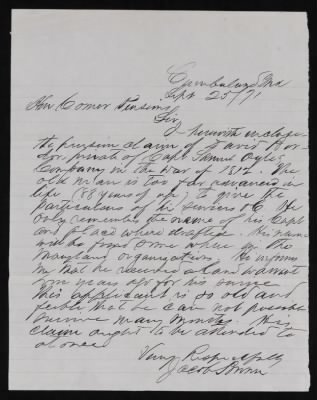 Cumberland Md
Sept 25/71
Hon Comor Pensions
Sir
I herewith inclose
the pension claim of David
private of Capt Samuel
Company in the war of 1812. The
old man is too far advanced in
life (88 years of age) to give the
particulars of his service &c He
only remembers the name of his Capt
and place where drafted. He
will be found some where in the
Maryland organization. He informs
me that he received a land warrant
years ago for his service
This applicant is so old and
feeble that he can not possibly
survive many months. His
claim ought to be attended to
at once
Very Respectfully
Jacob Brown